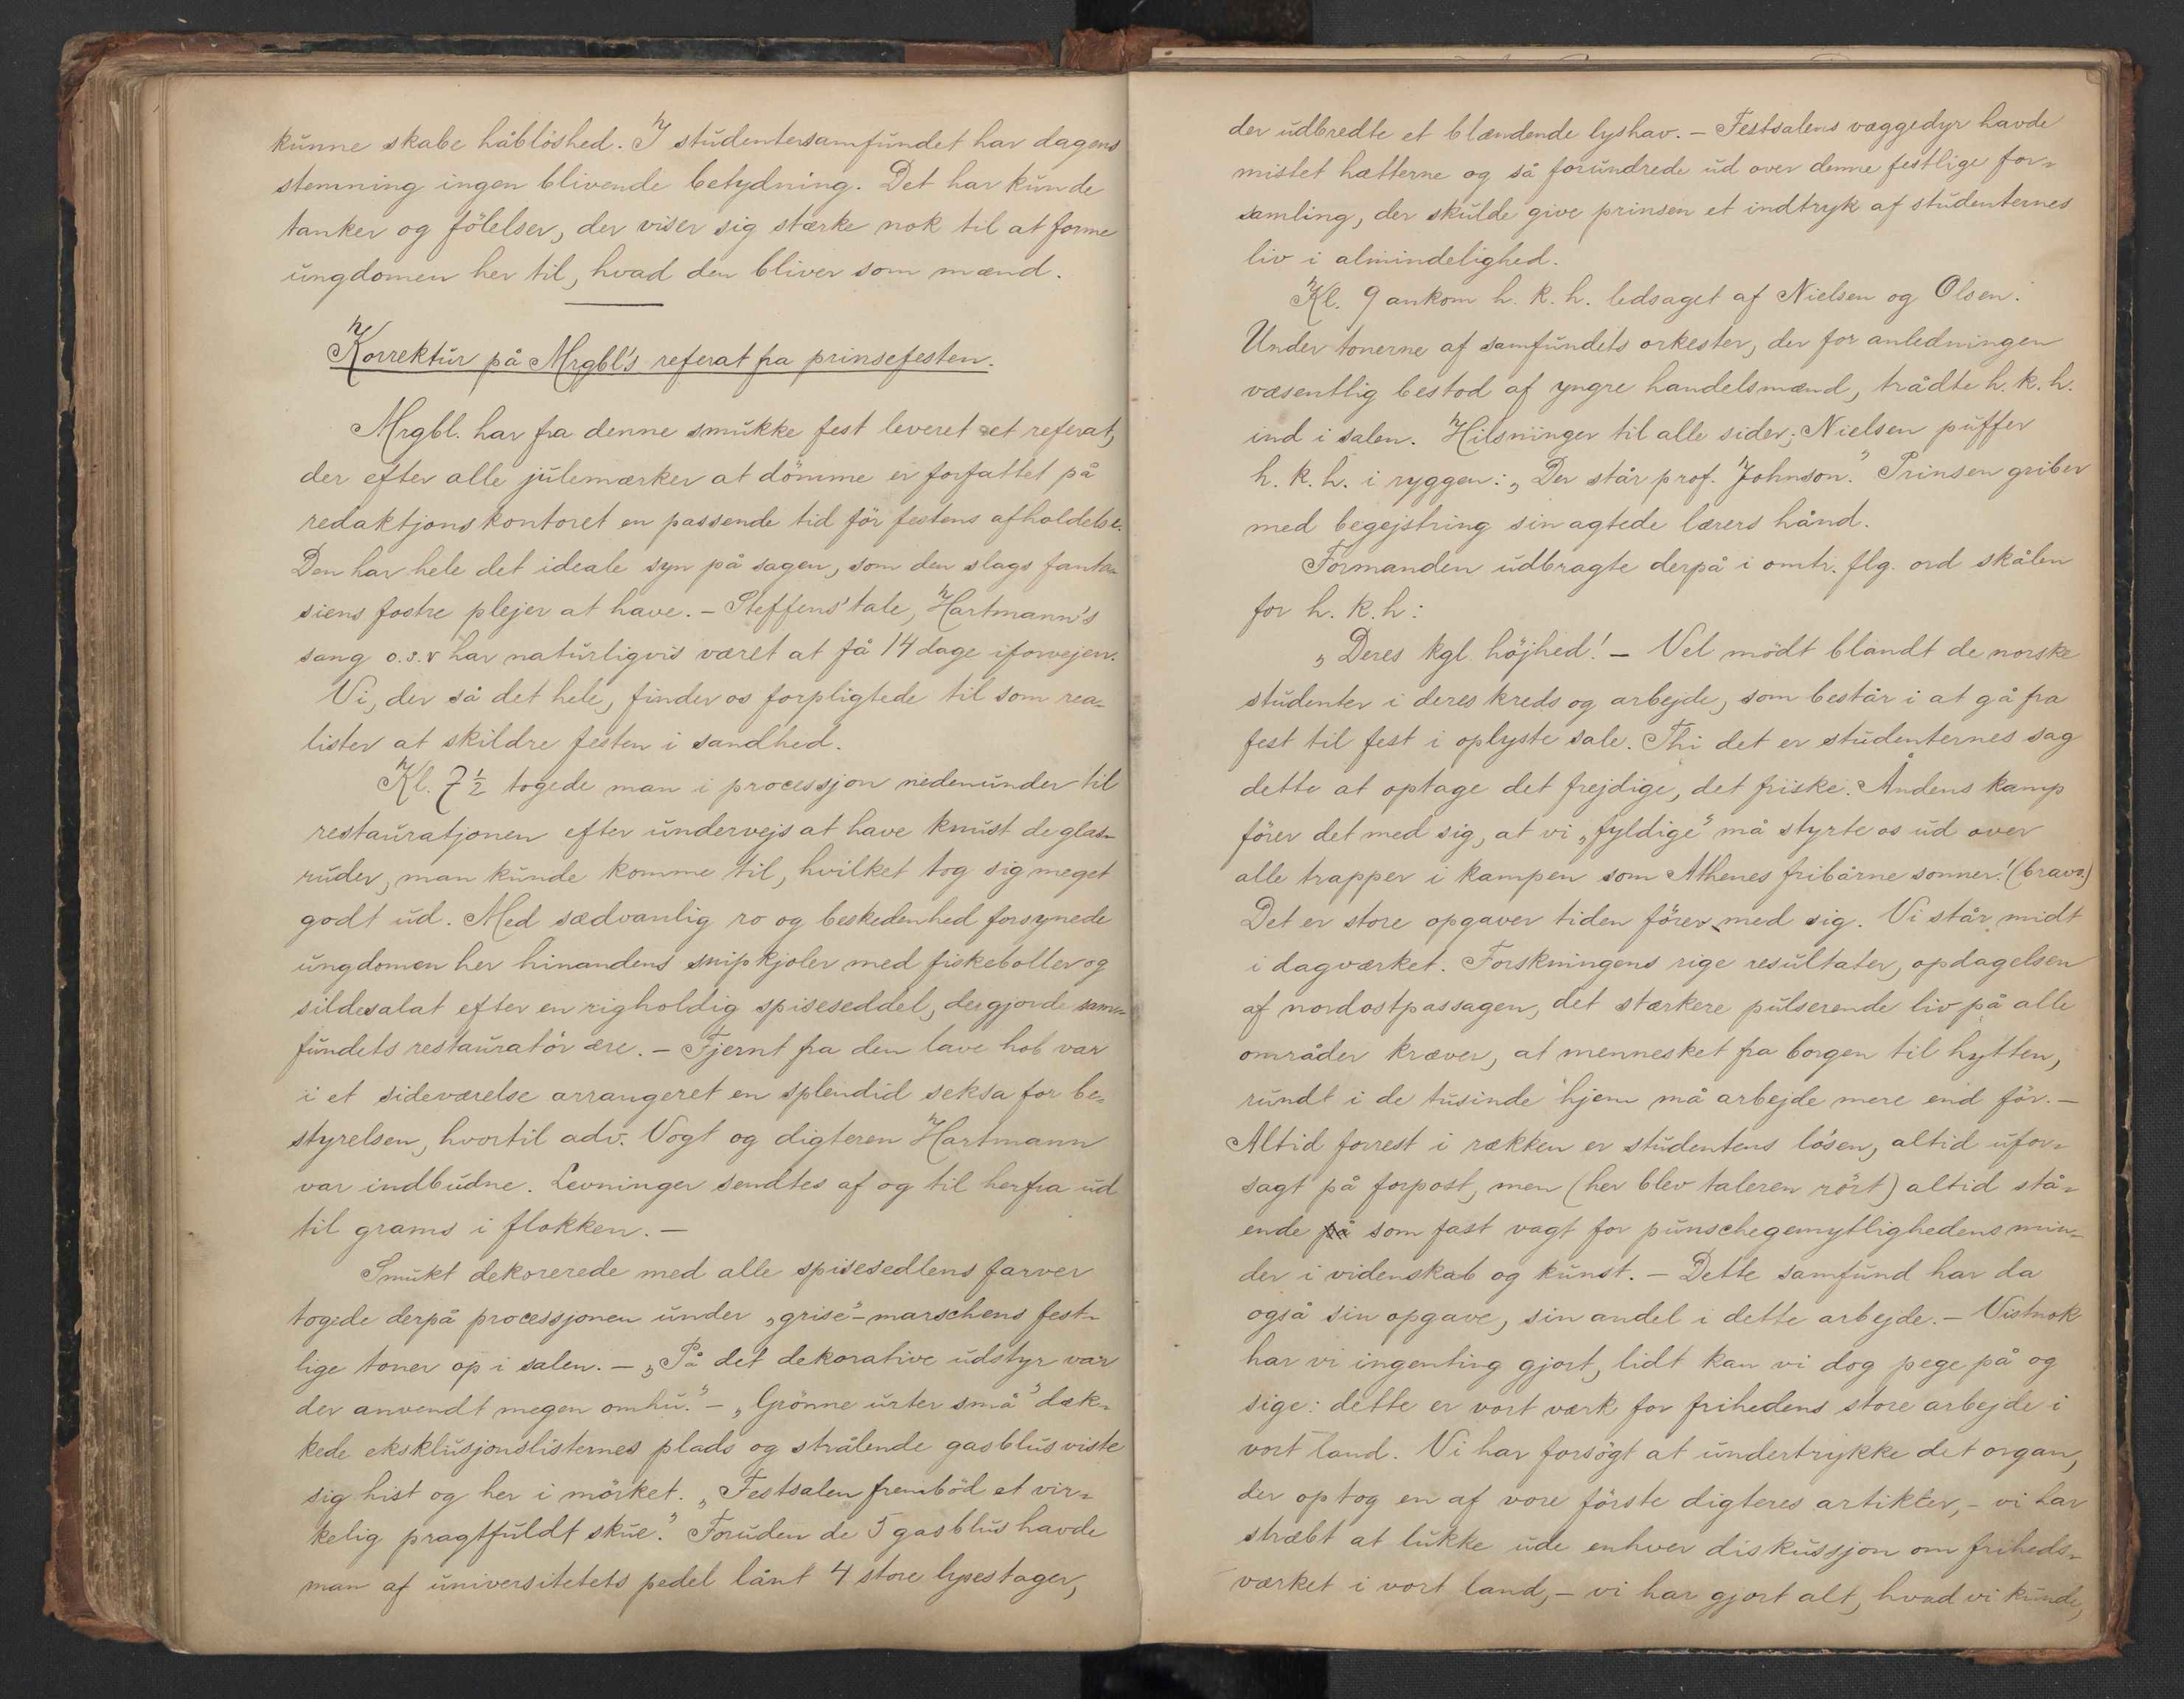 kunne skabe håblöshed. I studentersamfundet har dagens
stemning ingen blivende betydning. Det har kun de
tanker og fölelser, der viser sig stærke nok til at forme
ungdomen her til, hvad den bliver som mænd.
Korrektur på Mrgbl's referat fra prinsefesten.
Mrgbl. har fra denne smukke fest leveret et referat,
der efter alle julemærker at dömme er forfattet på
redaktjonskontoret en passende tid för festens afholdelse.
Den har hele det ideale syn på sagen, som den slags fanta-
siens fostre plejer at have. – Steffens' tale, Hartmann's
sang o.s.v har naturligvis været at få 14 dage iforvejen.
Vi, der så det hele, finder os forpligtede til som rea-
lister at skildre festen i sandhed.
Kl. 7 1/2 togede man i processjon nedenunder til
restauratjonen efter undervejs at have knust de glas-
ruder, man kunde komme til, hvilket tog sig meget
godt ud. Med sædvanlig ro og beskedenhed forsynede
ungdomen her hinandens snipkjoler med fiskeboller og
sildesalat efter en righoldig spiseseddel, der gjorde sam-
fundets restauratör ære. – Fjernt fra den lave hob var
i et sideværelse arrangeret en splendid seksa for be-
styrelsen, hvortil adv. Vogt og digteren Hartmann
var indbudne. Levninger sendtes af og til herfra ud
til grams i flokken. –
Smukt dekorerede med alle spisesedlens farver
togede derpå processjonen under „grise"-marschens fest-
lige toner op i salen. – „På det dekorative udstyr var
der anvendt megen omhu." – „Grönne urter små" dæk-
kede eksklusjonslisternes plads og strålende gasblus viste
sig hist og her i mörket. „Festsalen fremböd et vir-
kelig pragtfuldt skue." Foruden de 5 gasblus havde
man af universitetets pedel lånt 4 store lysestager,
der udbredte et blændende lyshav. – Festsalens væggedyr havde
mistet hætterne og så forundrede ud over denne festlige for-
samling, der skulde give prinsen et indtryk af studenternes
liv i almindelighed.
Kl. 9 ankom h. k. h. ledsaget af Nielsen og Olsen.
Under tonerne af samfundets orkester, der for anledningen
væsentlig bestod af yngre handelsmænd, trådte h. k. h.
ind i salen. Hilsninger til alle sider; Nielsen puffer
h. k. h. i ryggen: „Der står prof. Johnson." Prinsen griber
med begejstring sin agtede lærers hånd.
Formanden udbragte derpå i omtr. flg. ord skålen
for h. k. h:
„Deres kgl. höjhed! – Vel mödt blandt de norske
studenter i deres kreds og arbejde, som består i at gå fra
fest til fest i oplyste sale. Thi det er studenternes sag
dette at optage det frejdige, det friske. Åndens kamp
förer det med sig, at vi „fyldige" må styrte os ud over
alle trapper i kampen som Athenes fribårne sonner! (bravo.)
Det er store opgaver tiden förer med sig. Vi står midt
i dagværket. Forskningens rige resultater, opdagelsen
af nordostpassagen, det stærkere pulserende liv på alle
områder kræver, at mennesket fra borgen til hytten,
rundt i de tusinde hjem må arbejde mere end för. –
Altid forrest i rækken er studentens lösen, altid ufor-
sagt på forpost, men (her blev taleren rört) altid stå-
ende på som fast vagt for punschegemytlighedens min-
der i videnskab og kunst. – Dette samfund har da
også sin opgave, sin andel i dette arbejde. – Vistnok
har vi ingenting gjort, lidt kan vi dog pege på og
sige: dette er vort værk for frihedens store arbejde i
vort land. Vi har forsögt at undertrykke det organ,
der optog en af vore förste digteres artikler, – vi har
stræbt at lukke ude enhver diskussjon om friheds-
værket i vort land, – vi har gjort alt, hvad vi kunde,